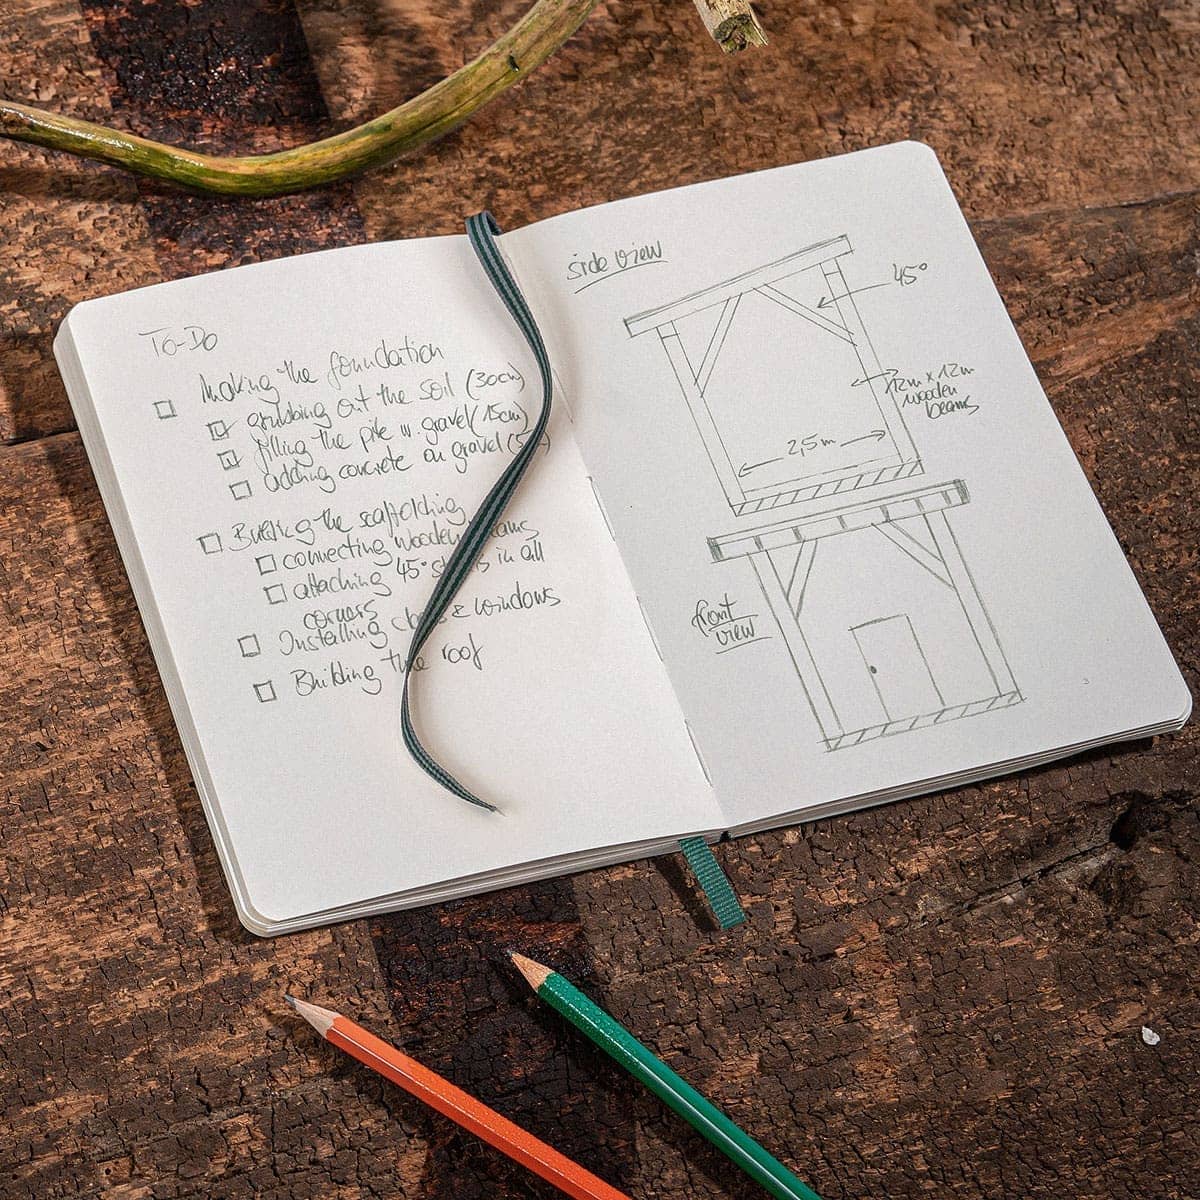 To-Do
Making the foundation
grubbing out the soil (30cm)
filling the pile w. gravel (15cm)
adding concrete on gravel
Building the scaffolding
connecting wooden
attaching 45° in all
corners
Installing & windows
Building the roof
side view
45°
12m x 12m
wooden
beams
2,5m
front
view
3